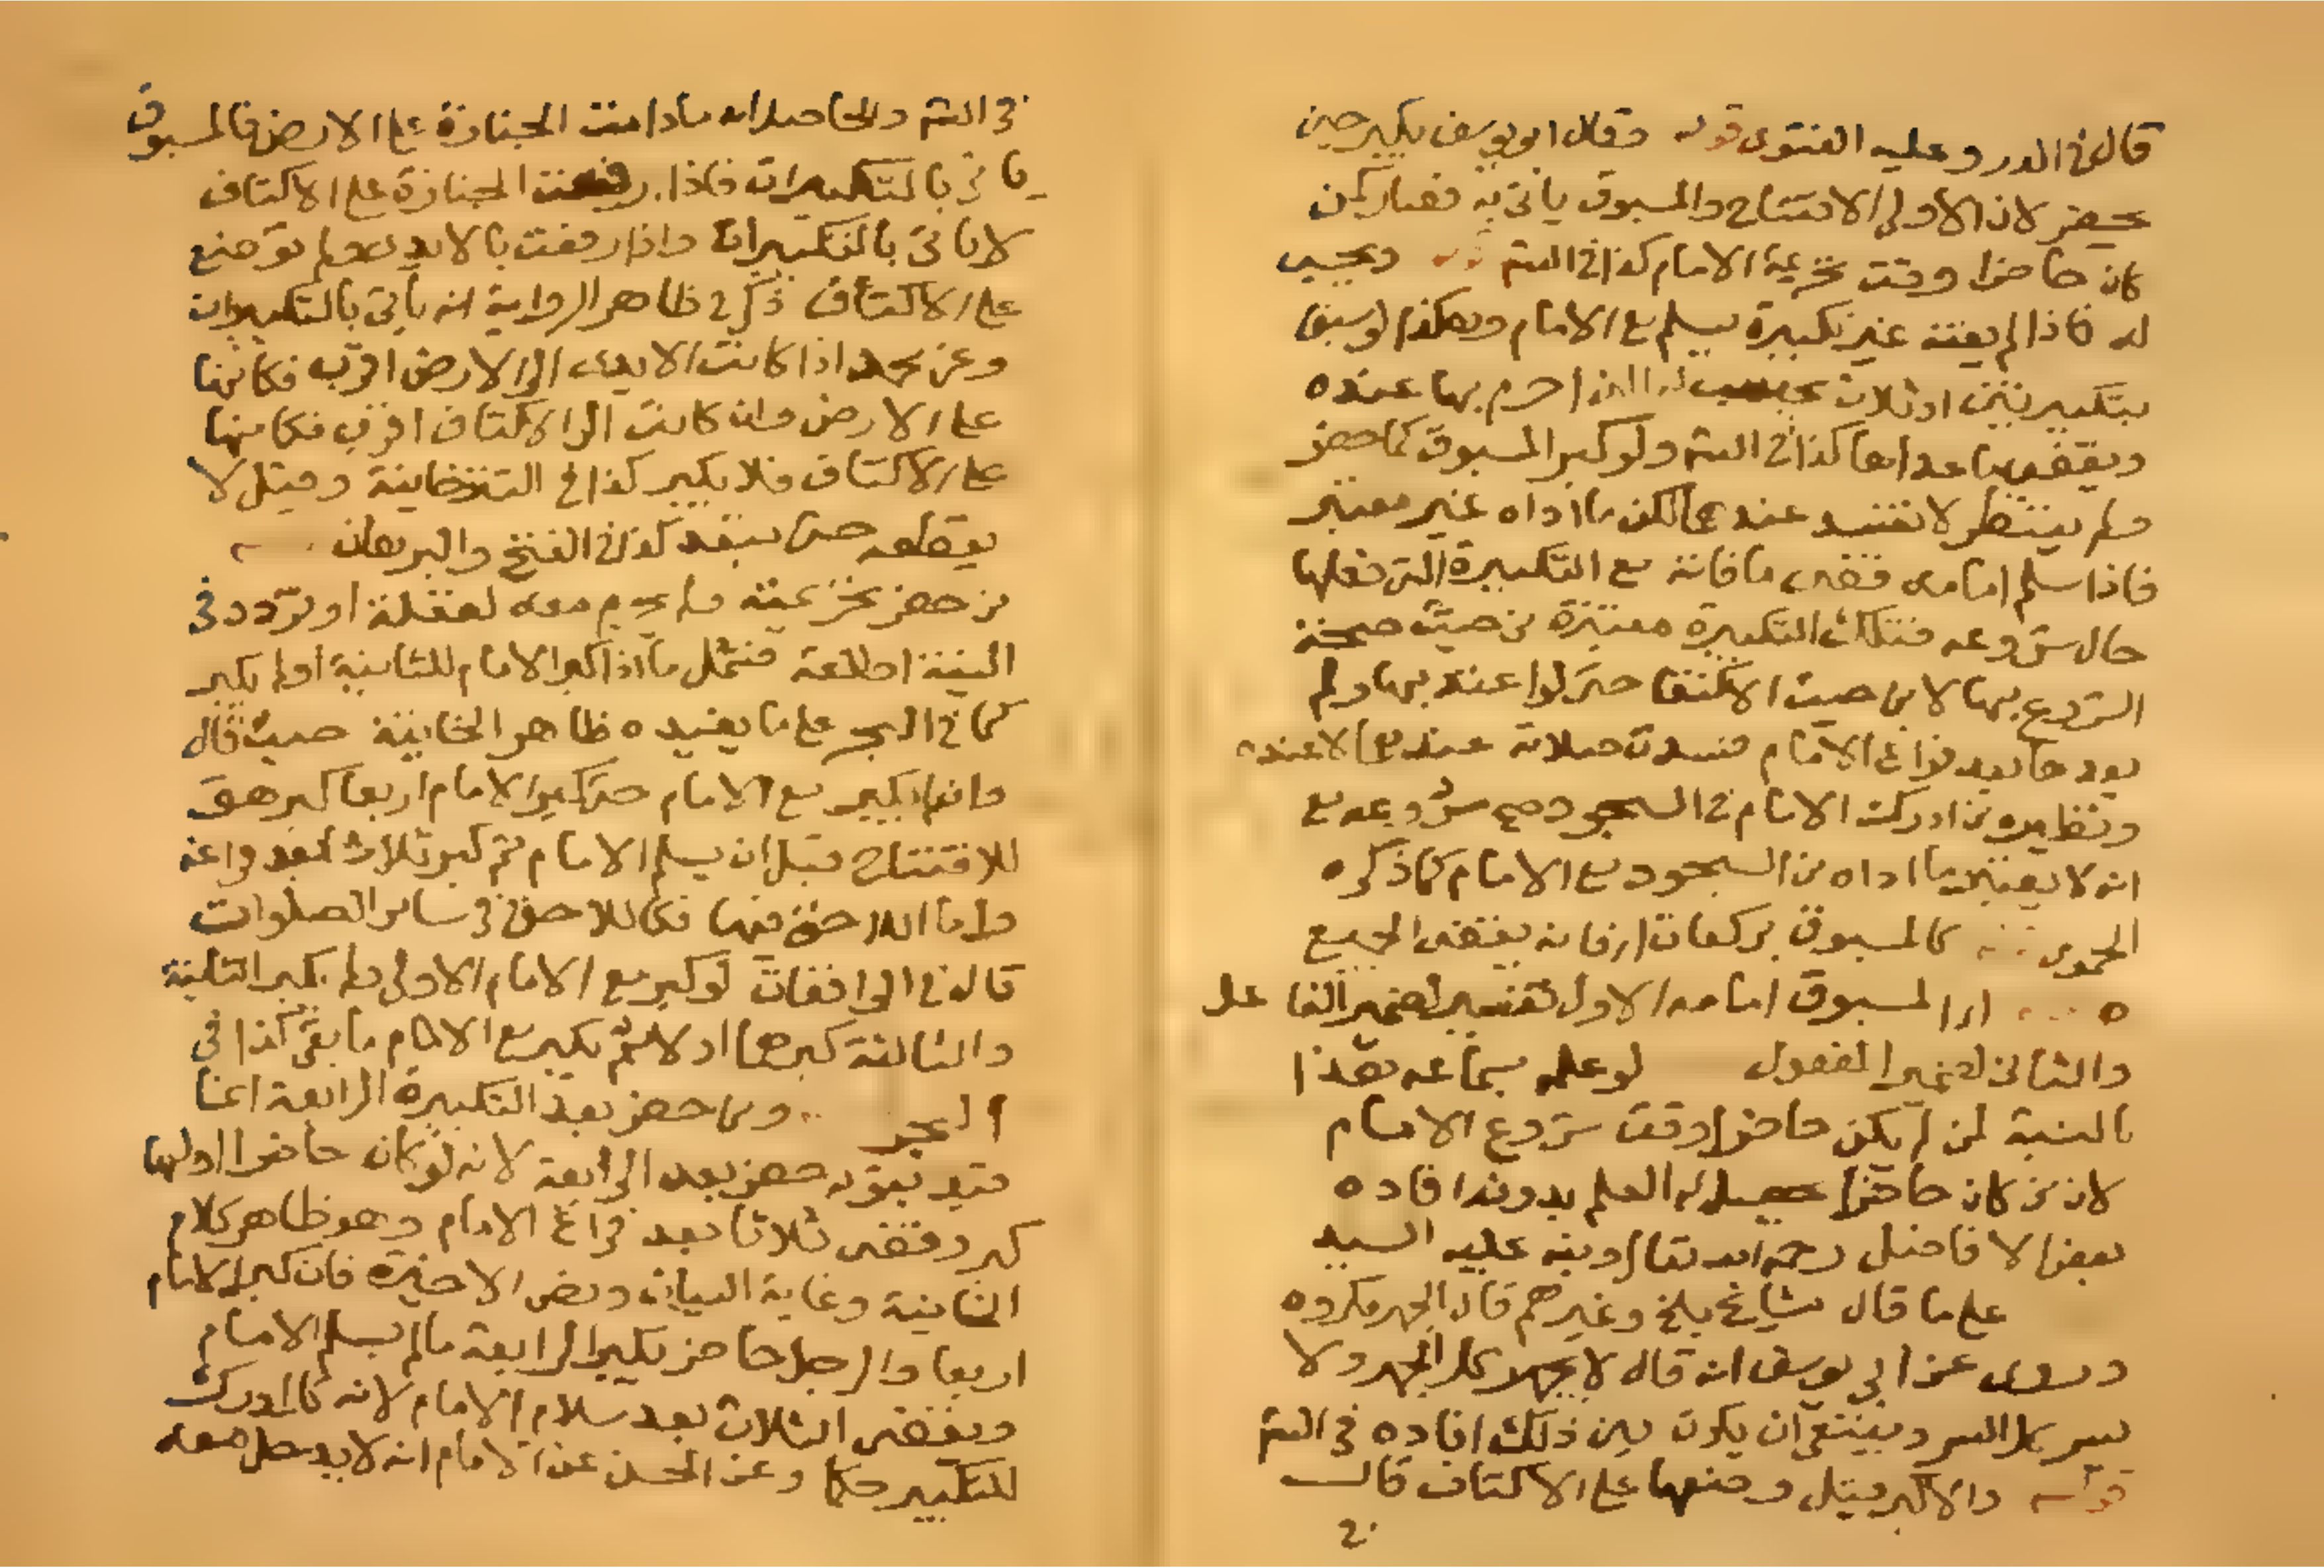 قال في الدر وعليه الفتوى قوله وقال ابو يوسف يكبر حين
يحضر لان الاولى للافتتاح والمسبوق ياتي به فصار كمن
كان حاضرا وقت تحريمة الامام كذا في الشم ويجيب
له فاذا لم يفته غير تكبيرة سلم مع الامام وهكذا لو سبق
بتكبيرتين او ثلاث احرم بها عنده
ويقضي ما عداها كذا في الشم ولو كبر المسبوق كما حضر
ولم ينتظر لا تفسد عندهما لكن ما اداه غير معتبر
فاذا سلم امامه قضى ما فاته مع التكبيرة التي فعلها
حال شروعه فتلك التكبيرة معتبرة من حيث صحة
الشروع بها لا من حيث الاكتفا حتى لو اعتد بها ولم
يعدها بعد فراغ الامام فسدت صلاته عندهما لا عنده
ونظيره من ادرك الامام في السجود صح شروعه مع
انه لا يعتبر ما اداه من السجود مع الامام كما ذكره
الحموي كالمسبوق بركعات فانه يقضي الجميع
ه اي المسبوق امامه الاول تفسير لضمير الفاعل
والثاني لضمير المفعول لو علم بسماعه هذا
بالنسبة لمن لم يكن حاضرا وقت شروع الامام
لان من كان حاضرا حصل له العلم بدونه افاده
بعض الافاضل رحمه الله تعالى ونبه عليه السيد
على ما قال مشايخ بلخ وغيرهم قال الجهر مكروه
وروى عن ابي يوسف انه قال لا يجهر كل الجهر ولا
يسر كل السر وينبغي ان يكون بين ذلك افاده في الشم
قوله والاكبر قبل وضعها على الاكتاف قال
في
في الشم والحاصل انه ما دامت الجنازة على الارض فالمسبوق
ياتي بالتكبيرات فاذا رفعت الجنازة على الاكتاف
لا ياتي بالتكبيرات واذا رفعت بالايدي ولم توضع
على الاكتاف ذكر في ظاهر الرواية انه ياتي بالتكبيرات
وعن محمد اذا كانت الايدي الى الارض اقرب فكانها
على الارض وان كانت الى الاكتاف اقرب فكانها
على الاكتاف فلا يكبر كذا في التتارخانية وقيل لا
يقطعه حتى تبعد كذا في الفتح والبرهان
من حضر تحريمته ولم يحرم معه لغفلة او تردد في
النية اطلعه فشمل ما اذا كبر الامام للثانية او لم يكبر
كما في البحر على ما يفيده ظاهر الخانية حيث قال
وانما يكبر مع الامام حتى كبر الامام اربعا كبر هو
للافتتاح قبل ان يسلم الامام ثم كبر ثلاثا بعد فراغه
واما اللاحق فيها فكاللاحق في سائر الصلوات
قال في الواقعات لو كبر مع الامام الاولى ولم يكبر الثانية
والثالثة كبرهما اولا ثم يكبر مع الامام ما بقي كذا في
البحر ومن حضر بعد التكبيرة الرابعة انما
قيد بقوله حضر بعد الرابعة لانه لو كان حاضرا اولها
كبر وقضى ثلاثا بعد فراغ الامام وهو ظاهر كلام
الخانية وغاية البيان ونص الاخيرة فان كبر الامام
اربعا والرجل حاضر يكبر الرابعة ما لم يسلم الامام
ويقضي الثلاث بعد سلام الامام لانه كالمدرك
للتكبير حكما وعن الحسن عن الامام انه لا يدخل معه